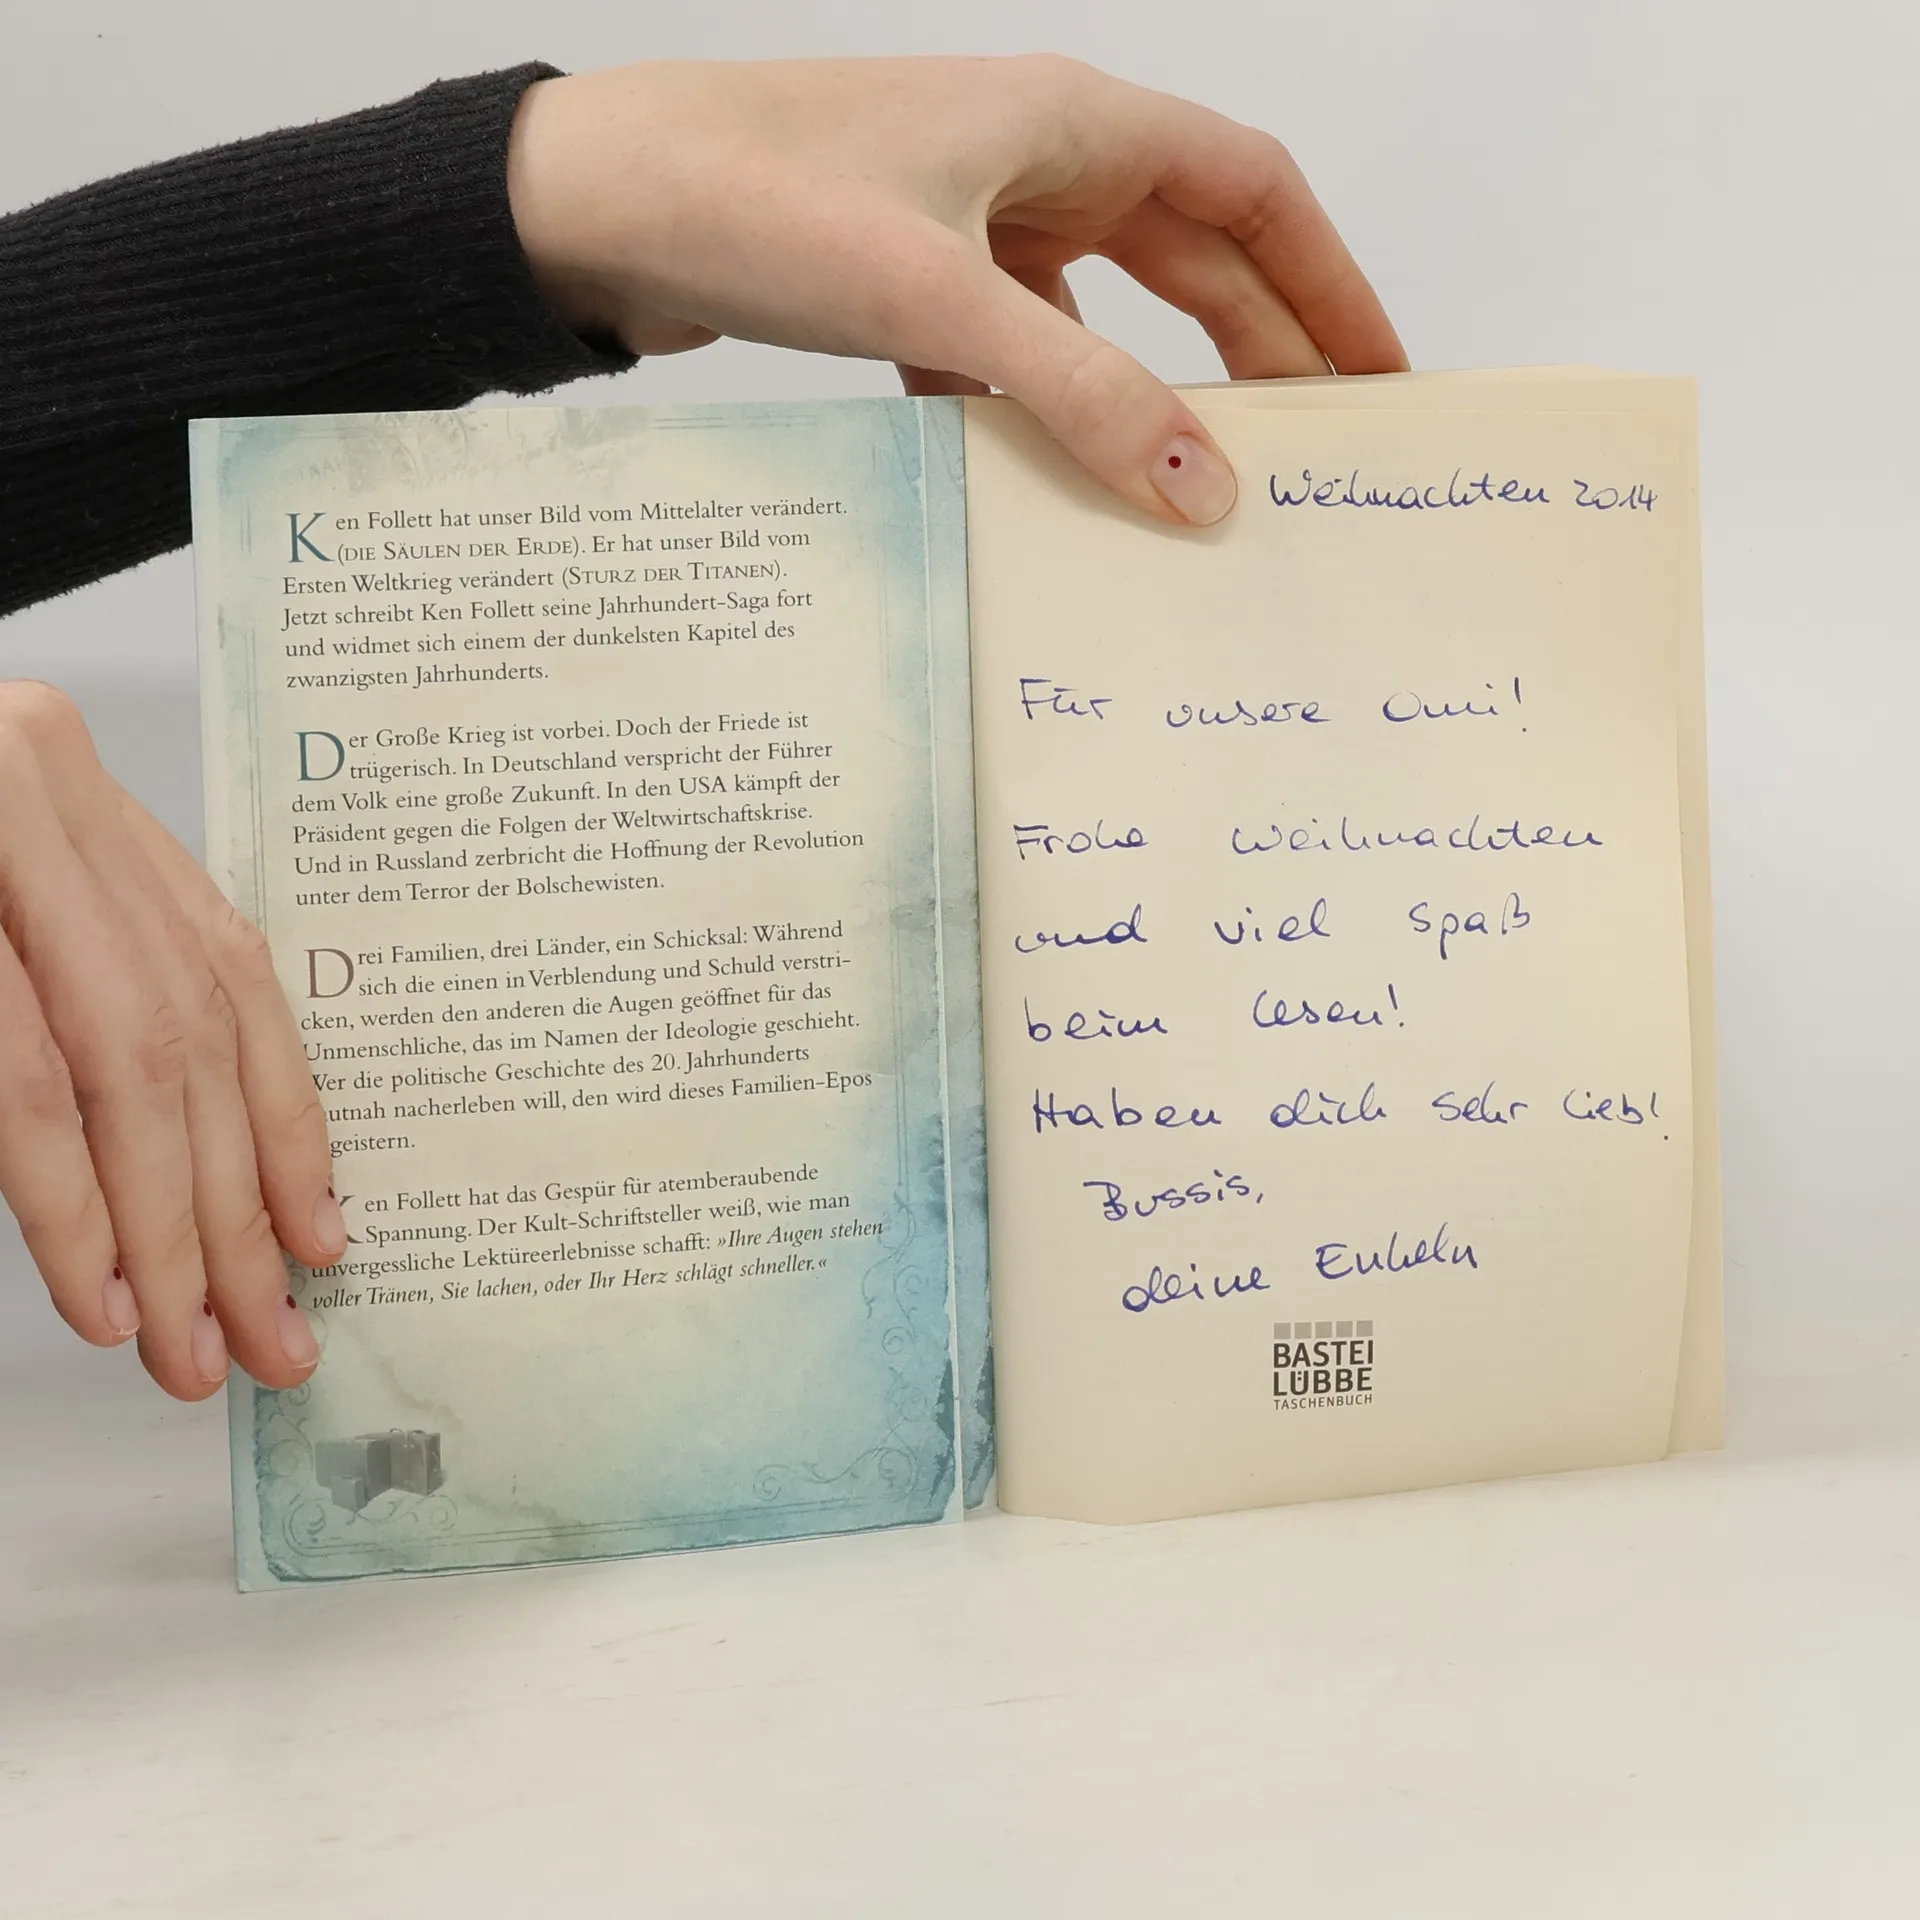 Ken Follett hat unser Bild vom Mittelalter verändert.
(DIE SÄULEN DER ERDE). Er hat unser Bild vom
Ersten Weltkrieg verändert (STURZ DER TITANEN).
Jetzt schreibt Ken Follett seine Jahrhundert-Saga fort
und widmet sich einem der dunkelsten Kapitel des
zwanzigsten Jahrhunderts.
Der Große Krieg ist vorbei. Doch der Friede ist
trügerisch. In Deutschland verspricht der Führer
dem Volk eine große Zukunft. In den USA kämpft der
Präsident gegen die Folgen der Weltwirtschaftskrise.
Und in Russland zerbricht die Hoffnung der Revolution
unter dem Terror der Bolschewisten.
Drei Familien, drei Länder, ein Schicksal: Während
sich die einen in Verblendung und Schuld verstri-
cken, werden den anderen die Augen geöffnet für das
Unmenschliche, das im Namen der Ideologie geschieht.
Wer die politische Geschichte des 20. Jahrhunderts
utnah nacherleben will, den wird dieses Familien-Epos
geistern.
Ken Follett hat das Gespür für atemberaubende
Spannung. Der Kult-Schriftsteller weiß, wie man
unvergessliche Lektüreerlebnisse schafft: »Ihre Augen stehen
voller Tränen, Sie lachen, oder Ihr Herz schlägt schneller.«
Weihnachten 2014
Für unsere Omi!
Frohe Weihnachten
und viel Spaß
beim lesen!
Haben dich sehr lieb!
Bussis,
deine Enkeln
BASTEI
LÜBBE
TASCHENBUCH